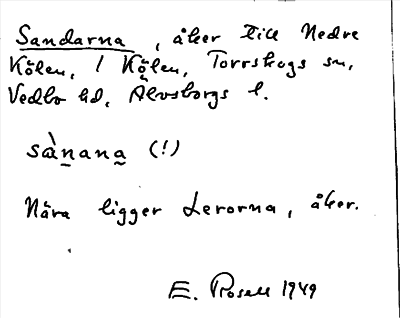 Sandarna, åker till Nedre
Kölen, / Kölen, Torrskogs sn,
Vedbo hd, Älvsborgs l.
sànana (!)
Nära ligger Lerorna, åker.
E. Rosell 1949